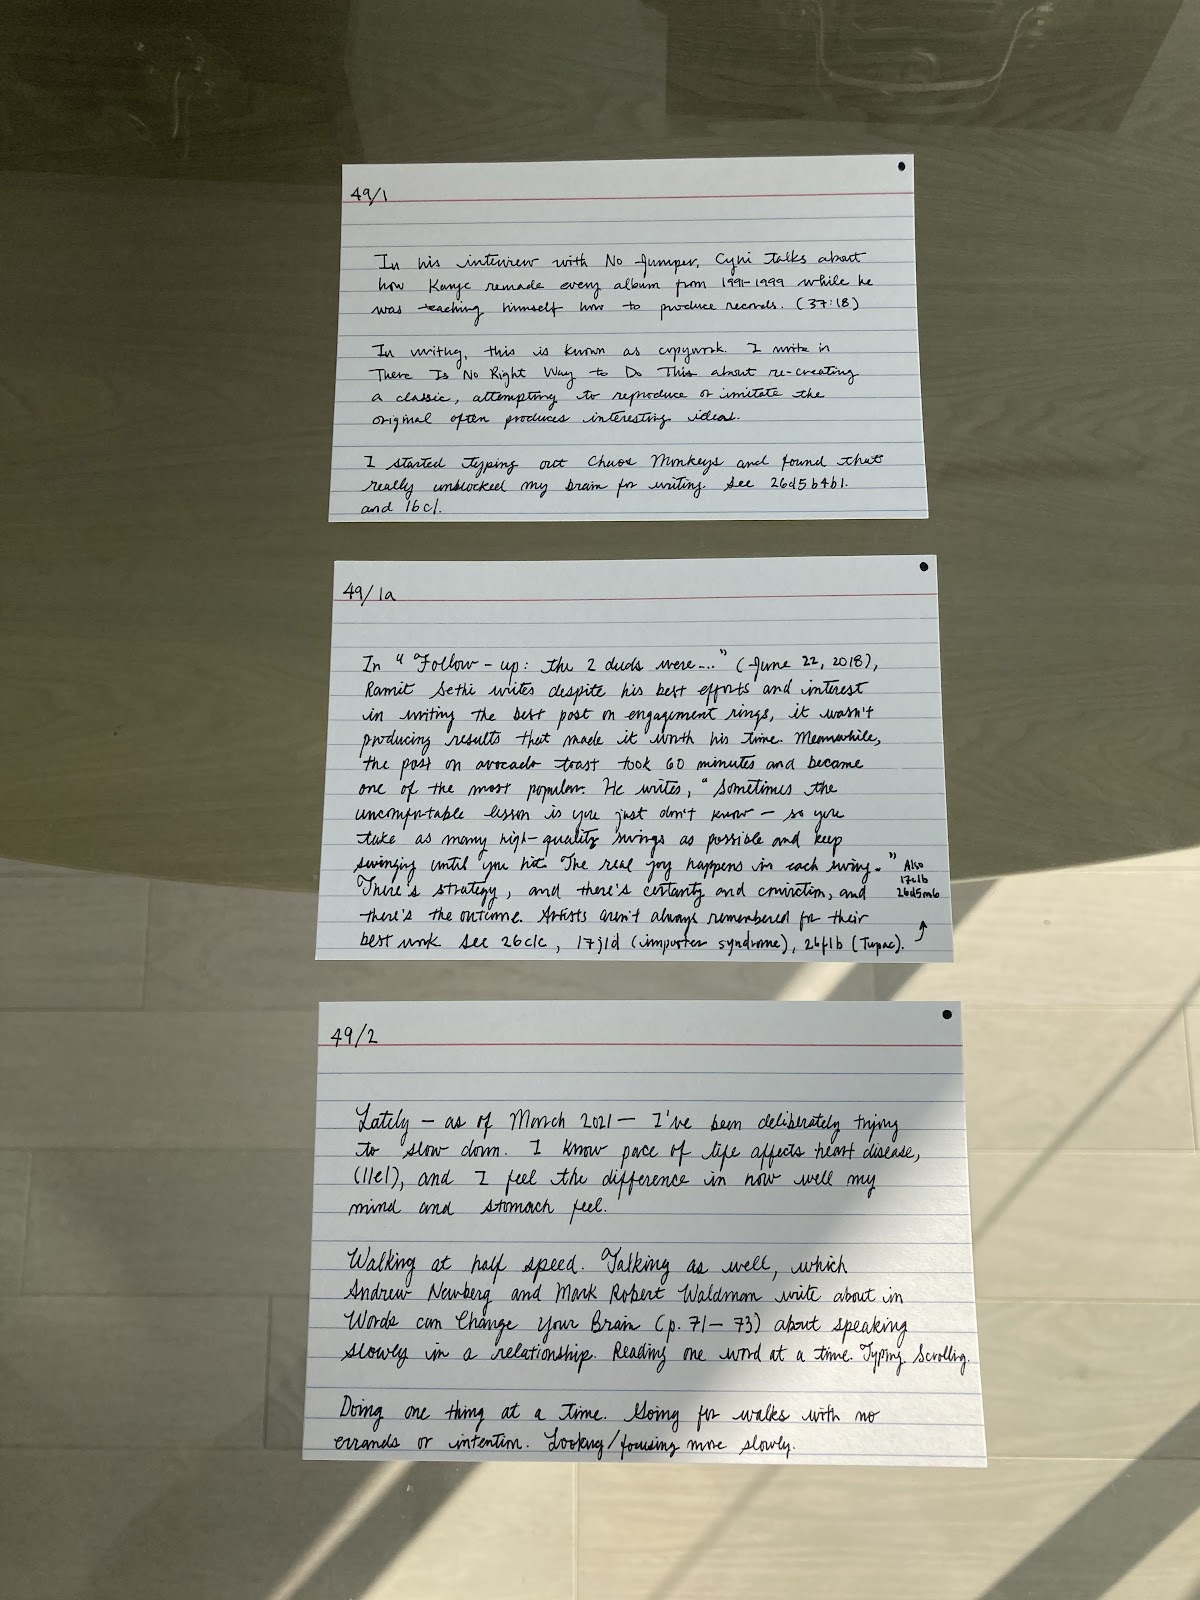 49/1
In his interview with No Jumper, Cyhi talks about
how Kanye remade every album from 1991-1999 while he
was teaching himself how to produce records. (37:18)
In writing, this is known as copywork. I write in
There Is No Right Way to Do This about re-creating
a classic, attempting to reproduce or imitate the
original often produces interesting ideas.
I started typing out Chaos Monkeys and found that
really unblocked my brain for writing. See 26d5b4b1.
and 16c1.
49/1a
In "Follow-up: the 2 duds were..." (June 22, 2018),
Ramit Sethi writes despite his best efforts and interest
in writing the best post on engagement rings, it wasn't
producing results that made it worth his time. Meanwhile,
the post on avocado toast took 60 minutes and became
one of the most popular. He writes, "Sometimes the
uncomfortable lesson is you just don't know — so you
take as many high-quality swings as possible and keep
swinging until you hit. The real joy happens in each swing."
There's strategy, and there's certainty and conviction, and
there's the outcome. Artists aren't always remembered for their
best work See 26c1c, 17j1d (imposter syndrome), 26f1b (Tupac).
Also
17c1b
26d5m6
49/2
Lately — as of March 2021 — I've been deliberately trying
to slow down. I know pace of life affects heart disease,
(11e1), and I feel the difference in how well my
mind and stomach feel.
Walking at half speed. Talking as well, which
Andrew Newberg and Mark Robert Waldman write about in
Words can Change Your Brain (p. 71-73) about speaking
slowly in a relationship. Reading one word at a time. Typing. Scrolling.
Doing one thing at a time. Going for walks with no
errands or intention. Looking/focusing more slowly.